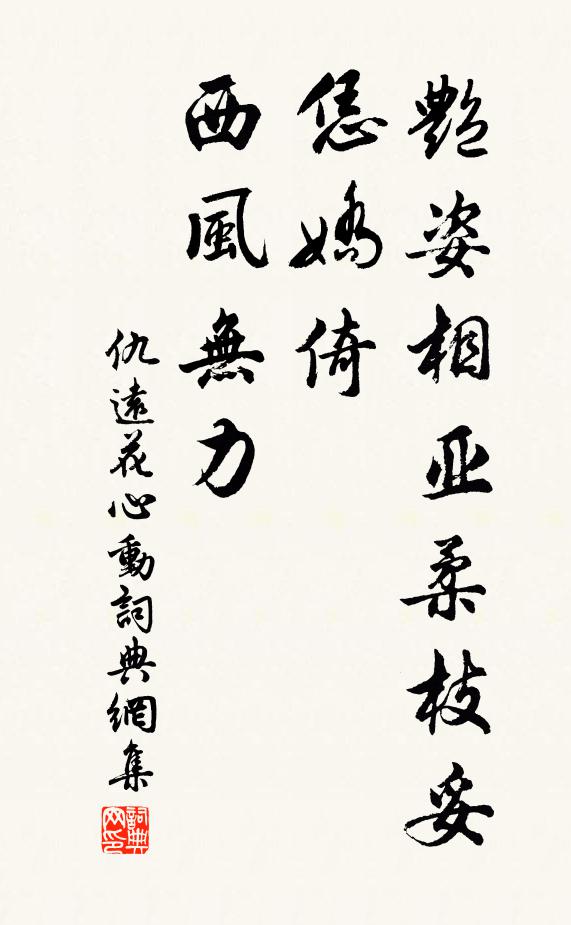 艷姿相亚柔枝妥
恁嬌倚
西風無力
仇遠花心動詞典網集
詞典网印